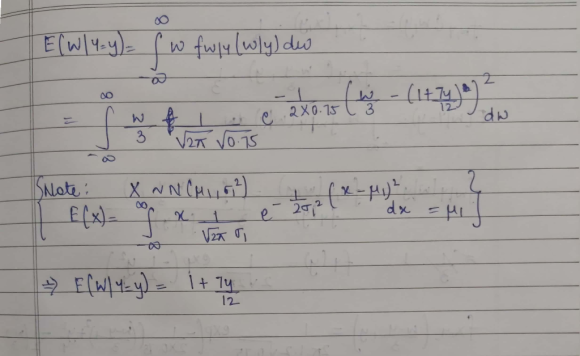 E(W|Y=y) = ∫_{-∞}^{∞} w f_{W|Y}(w|y) dw
= ∫_{-∞}^{∞} w/3 1/(√2π √0.75) e^{-1/(2×0.75) (w/3 - (1+7y/12))^2} dw
{Note: X ~ N(μ₁, σ₁²)
E(x) = ∫_{-∞}^{∞} x · 1/(√2π σ₁) e^{-1/(2σ₁²) (x-μ₁)^2} dx = μ₁}
⇒ E(W|Y=y) = 1 + 7y/12